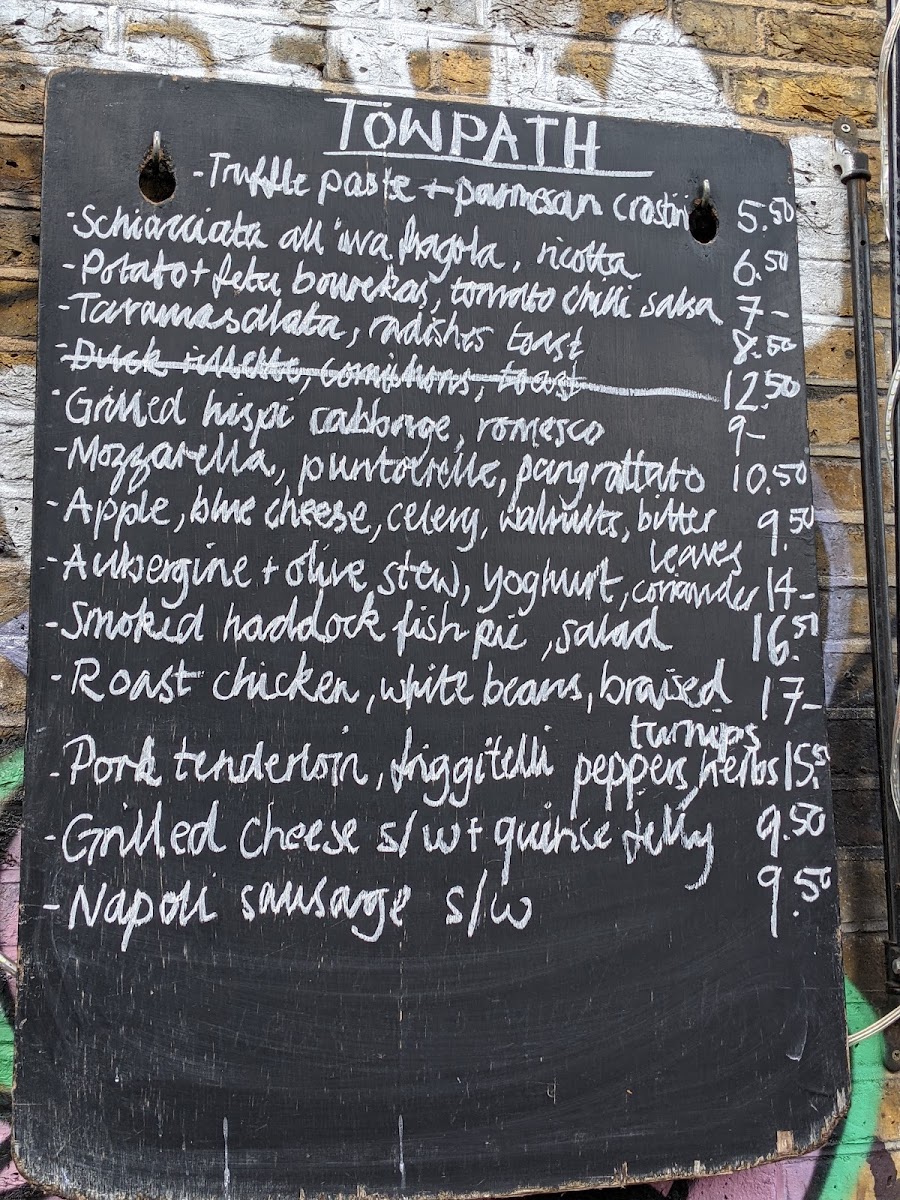 TOWPATH
- Truffle paste + parmesan crostini 5.50
- Schiacciata all'uva fragola, ricotta 6.50
- Potato + feta bourekas, tomato chilli salsa 7-
- Taramasalata, radishes toast 8.50
- Duck rillette, cornichons, toast 12.50
- Grilled hispi cabbage, romesco 9-
- Mozzarella, puntarelle, pangrattato 10.50
- Apple, blue cheese, celery, walnuts, bitter 9.50
leaves
- Aubergine + olive stew, yoghurt, coriander 14-
- Smoked haddock fish pie, salad 16.50
- Roast chicken, white beans, braised 17-
turnips
- Pork tenderloin, friggitelli peppers, herbs 15.50
- Grilled cheese s/w + quince jelly 9.50
- Napoli sausage s/w 9.50